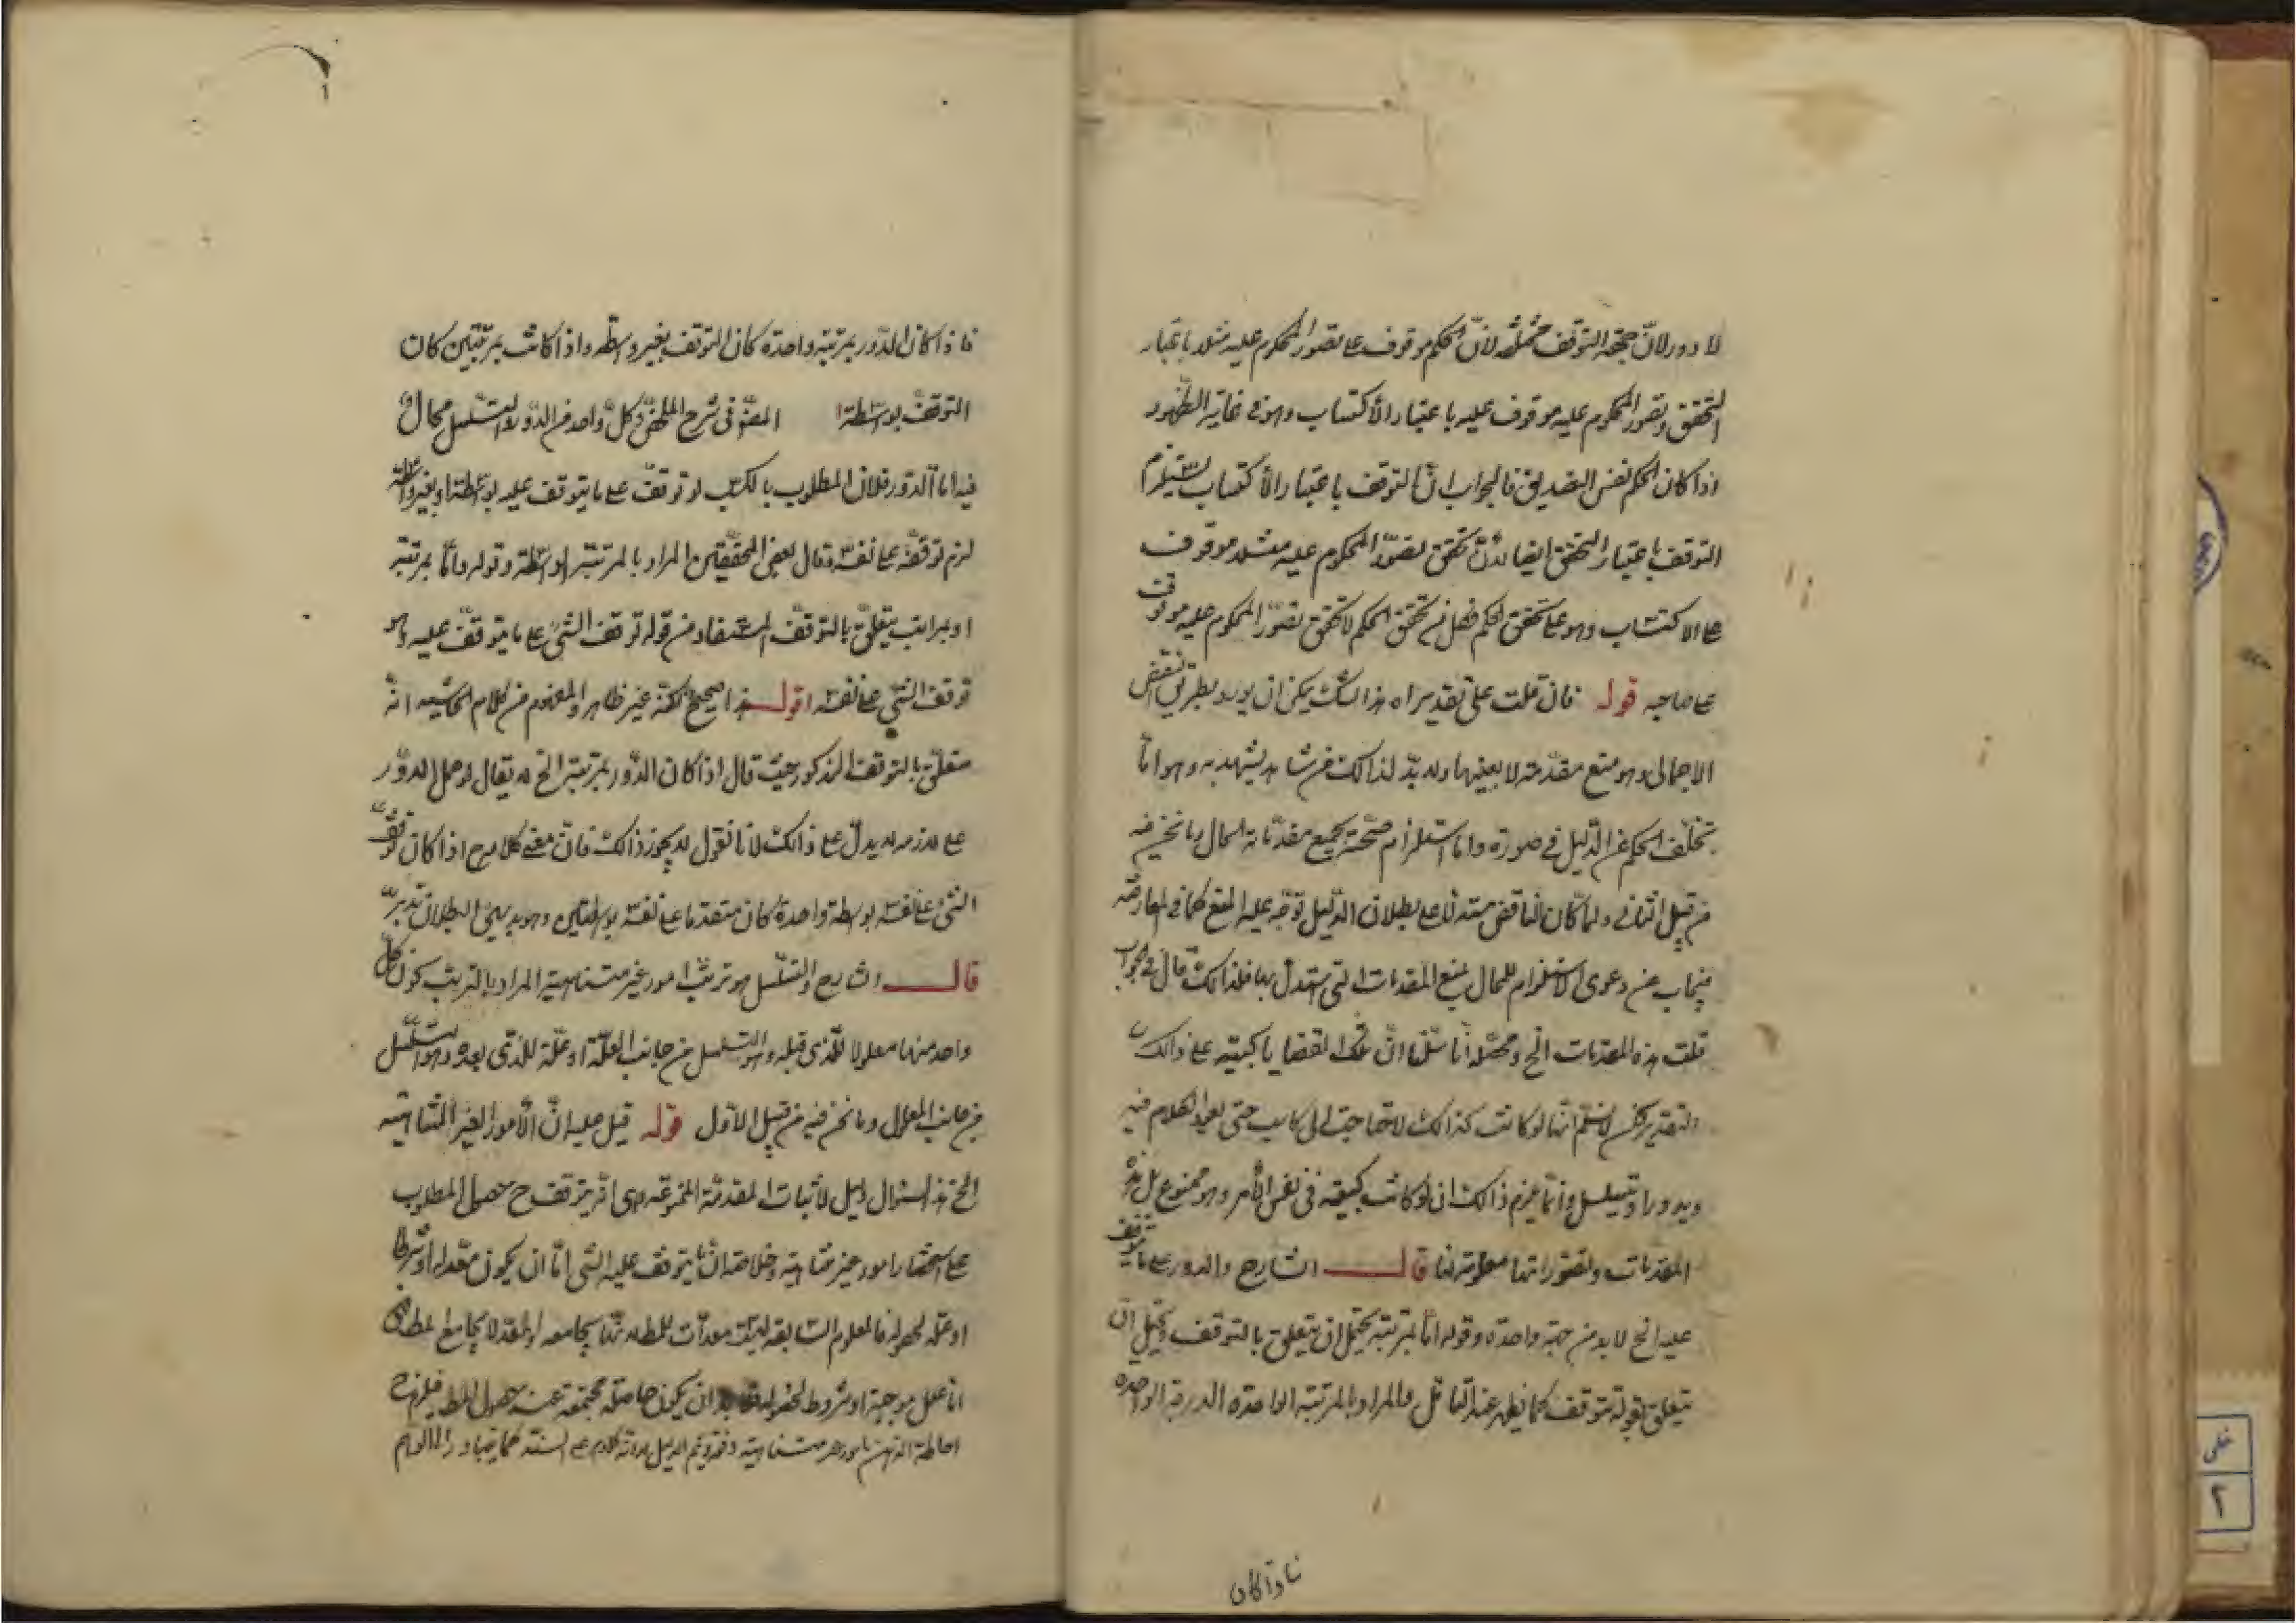 لا دور لان جهة التوقف مختلفة لان الحكم موقوف على تصور المحكوم عليه مثلا باعتبار
التحقق وتصور المحكوم عليه موقوف عليه باعتبار الاكتساب وهو في غاية الظهور
اذا كان الحكم نفس التصديق فالجواب ان التوقف باعتبار الاكتساب يستلزم
التوقف باعتبار التحقق ايضا لان تحقق تصور المحكوم عليه مثلا موقوف
على الاكتساب وهو على تحقق الحكم تحقق الحكم لا تحقق تصور المحكوم عليه موقوف
على صاحبه قوله فان قلت على تقدير هذا الشك يمكن ان يورد بطريق النقض
الاجمالى وهو منع مقدمته لا بعينها ولا بد لذالك من شاهد يشهد به وهو اما
تخلف الحكم عن الدليل في صورة واما استلزام صحة جميع مقدماته المحال وما نحن فيه
من قبيل الثانى ولما كان الناقض مستدلا على بطلان الدليل توجه عليه المنع كما في المعارضة
فيجاب عن دعوى الاستلزام للمحال بمنع المقدمات التى استدل بها فلذالك قال في الجواب
قلت هذه المقدمات الخ ومحصله انا سلمنا ان تلك القضايا كسبية على ذالك
التقدير لكن لا نسلم انها لو كانت كذالك لاحتاجت الى كاسب حتى يعود الكلام فيه
ويدور او يتسلسل وانما يلزم ذالك ان لو كانت كسبية فى نفس الامر وهو ممنوع بل هذه
المقدمات وتصوراتها معلومة لنا قال الشارح والدور على ما يتوقف
عليه الخ لا بد من جهة واحدة وقوله اما بمرتبة يحتمل ان يتعلق بالتوقف ويحتمل ان
يتعلق بقوله يتوقف كما يظهر عند التامل والمراد بالمرتبة الواحدة الدرجة الواحدة
فاذا كان
فاذا كان الدور بمرتبة واحدة كان التوقف بغير واسطة واذا كانت بمرتبتين كان
التوقف بواسطة المصنف فى شرح الملخص وكل واحد من الدور والتسلسل محال
فيه اما الدور فلان المطلوب بالكسب لو توقف على ما يتوقف عليه بواسطة او بغير واسطة
لزم توقفه على نفسه وقال بعض المحققين المراد بالمرتبة الواسطة وقوله واما بمرتبة
او بمراتب يتعلق بالتوقف المستفاد من قوله توقف الشئ على ما يتوقف عليه وهو
توقف الشئ على نفسه اقول هذا صحيح لكنه غير ظاهر والمفهوم من كلام المحشى انه
متعلق بالتوقف المذكور حيث قال اذا كان الدور بمرتبة الخ لا يقال لو حمل الدور
على لا يدل على ذالك لانا نقول لا يجوز ذالك فان معنى كلامه ح اذا كان توقف
الشئ على نفسه بواسطة واحدة كان متقدما على نفسه بواسطتين وهو بديهى البطلان تدبر
قال الشارح والتسلسل هو ترتب امور غير متناهية المراد بالترتب كون كل
واحد منها معلولا للذى قبله وهو التسلسل من جانب العلة او علة للذى بعده وهو التسلسل
من جانب المعلول وما نحن فيه من قبيل الاول قوله قيل عليه ان الامور الغير المتناهية
الخ هذا السؤال دليل لاثبات المقدمة الممنوعة وهى انه يتوقف ح حصول المطلوب
على استحضار امور غير متناهية وخلاصته ان ما يتوقف عليه الشئ اما ان يكون معدا له او شرطا
او علة لحصوله فالعلوم السابقة ليست معدات للمطلوب لانها تجامعه والمعد لا يجامع المطلوب
اما علل موجبة او شروط لحصوله ان يكون حاصلة مجتمعة عند حصول المطلوب فيلزم ح
احاطة الذهن بامور غير متناهية